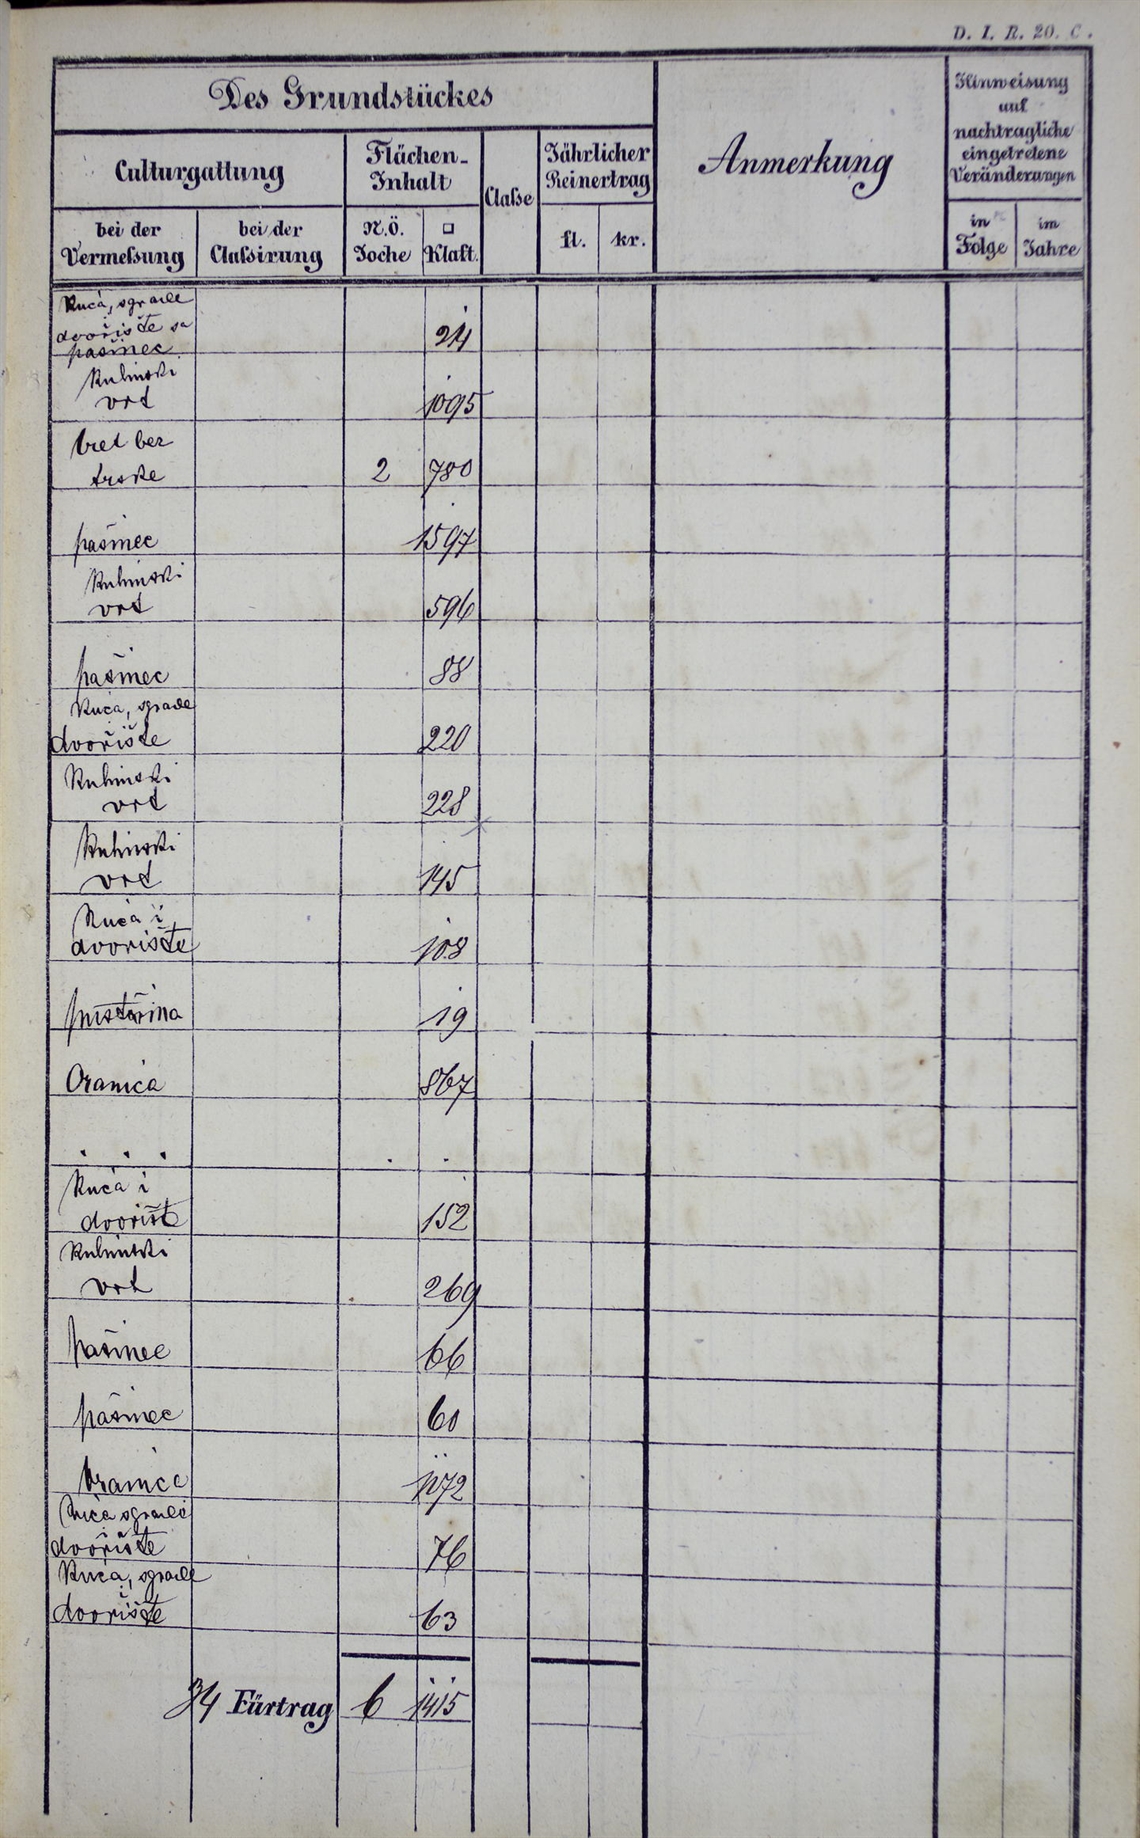 D. I. R. 20. C.
Des Grundstückes
Anmerkung
Hinweisung
auf
nachtragliche
eingetretene
Veränderungen
Culturgattung
Flächen-
Inhalt
Classe
Jährlicher
Reinertrag
bei der
Vermessung
bei der
Classirung
N.Ö.
Joche
□
Klaft.
fl.
kr.
in
Folge
im
Jahre
Kuća, sgrade
dvorište sa
pašinec 24
Kuhinski
vrt 1095
2 780
pašinec 1597
Kuhinski
vrt 596
pašinec 88
Kuća, sgrade
dvorište 220
Kuhinski
vrt 228
Kuhinski
vrt 145
Kuća i
dvorište 108
pustărina 19
Oranica 867
. . . . .
Kuća i
dvorište 152
Kuhinski
vrt 269
pašinec 66
pašinec 60
Oranica 1172
Kuća sgrade
i
dvorište 76
Kuća, sgrade
i
dvorište 63
34 Fürtrag 6 1415